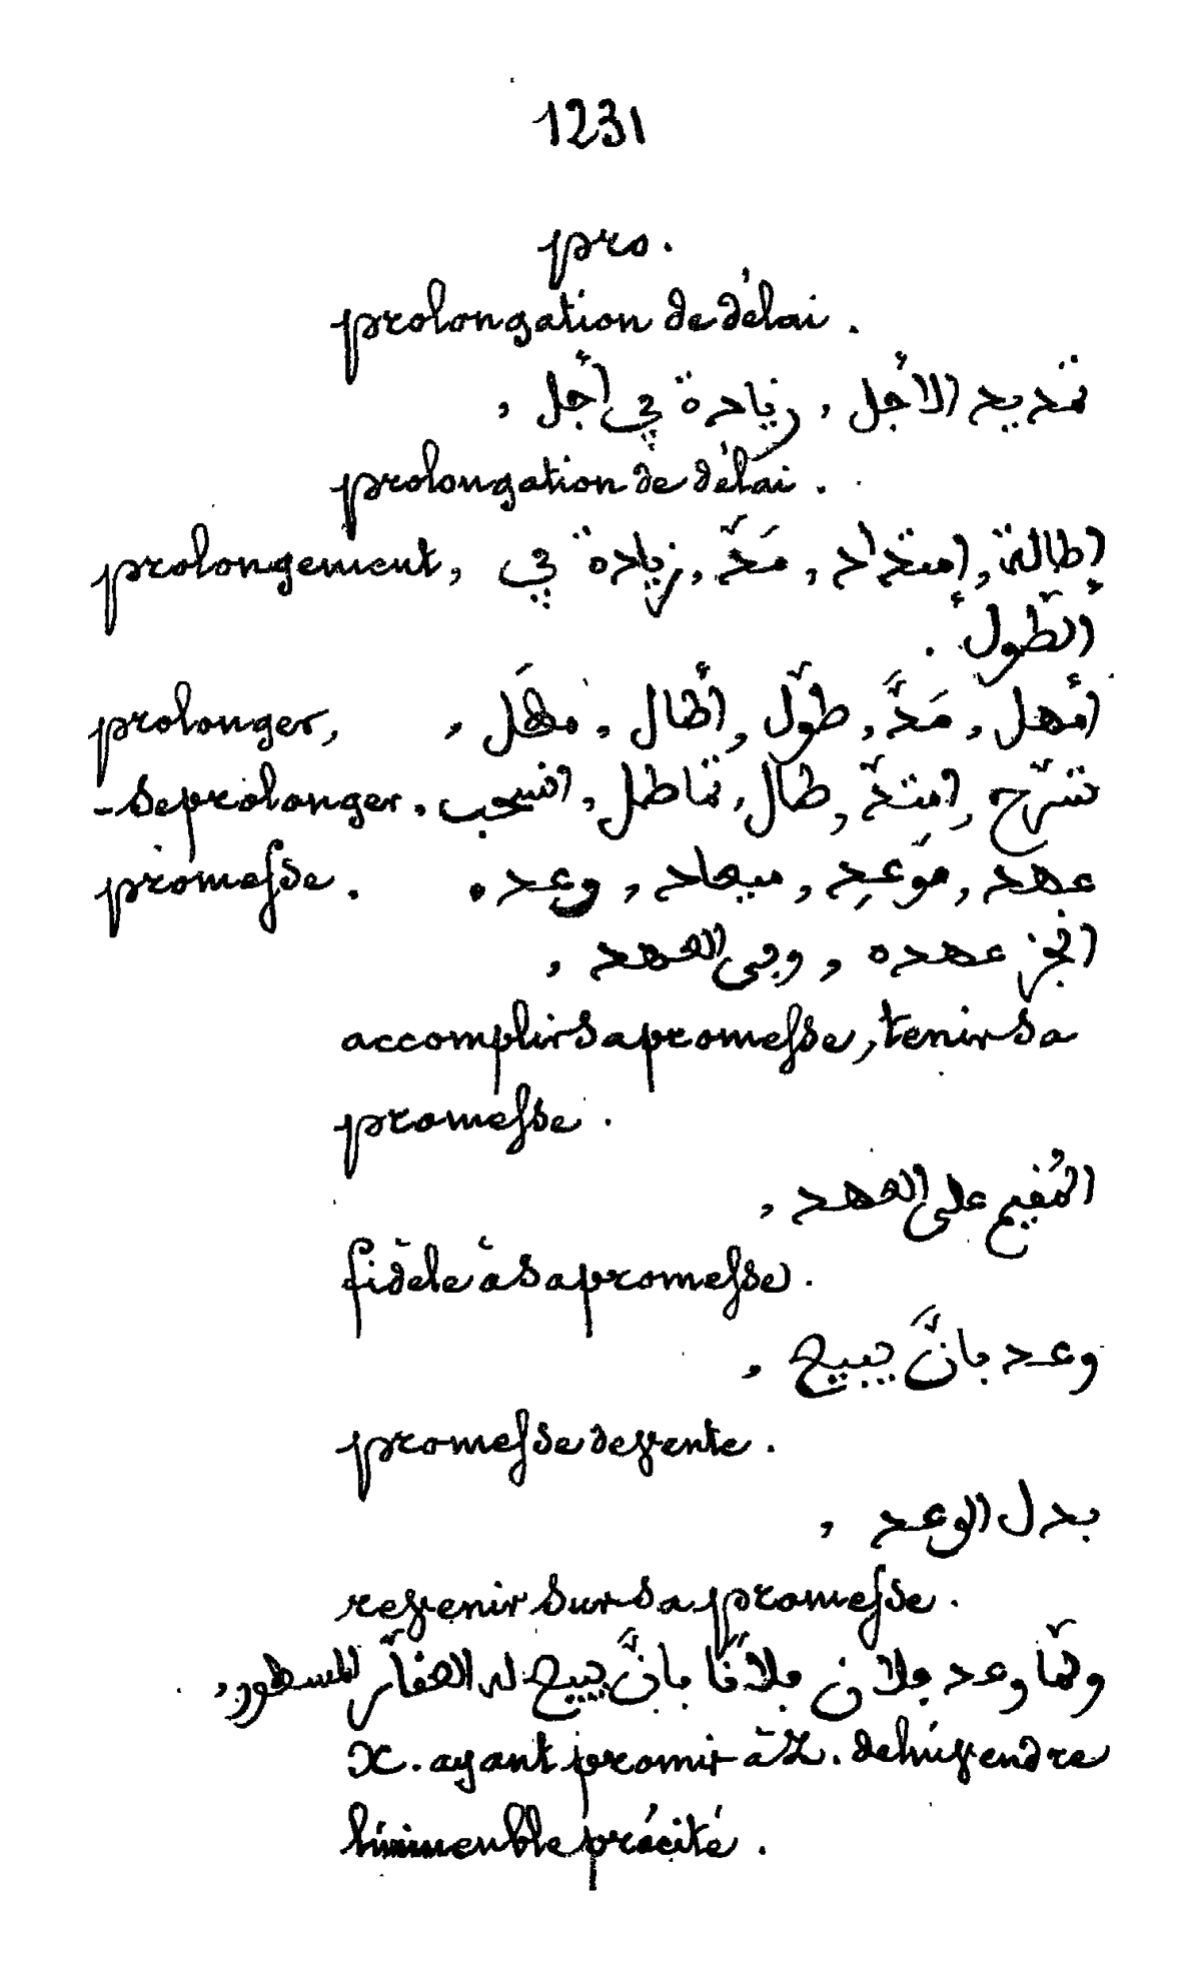 1231
pro.
prolongation de délai.
تمديد الأجل، زيادة في أجل،
prolongation de délai.
prolongement, إطالة، إمتداد، مَدّ، زيادة في
الطّول.
prolonger, أمهل، مَدَّ، طوّل، أطال، مهّل،
- se prolonger. تسرّح، إمتدّ، طال، تماطل، انسحب،
promesse. عهد، مَوعِد، ميعاد، وعد.
انجز عهده، وفى العهد،
accomplir sa promesse, tenir sa
promesse.
المُقيم على العهد،
fidèle à sa promesse.
وعد بانَّ يبيع،
promesse de vente.
بدل الوعد،
revenir sur sa promesse.
ولمّا وعد فلان فلانًا بانَّ يبيع له العقار المسطور،
X. ayant promis à Z. de lui vendre
l'immeuble précité.